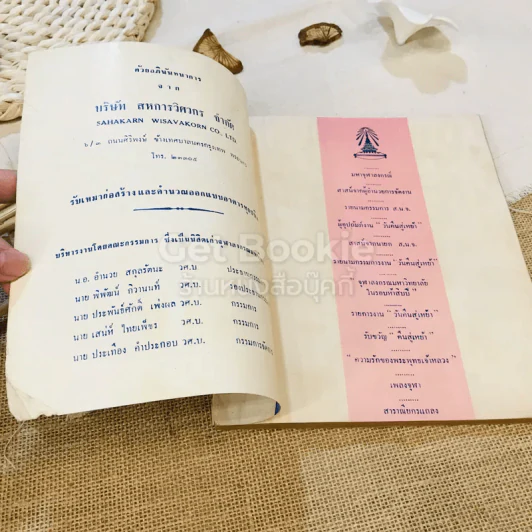 ด้วยอภินันทนาการ
จาก
บริษัท สหการวิศวกร จำกัด
SAHAKARN WISAVAKORN CO., LTD
๖/๓ ถนนศิริพงษ์ ข้างเทศบาลนครกรุงเทพ
โทร.
รับเหมาก่อสร้าง และคำนวณออกแบบอาคารทุกชนิด
บริหารงานโดยคณะกรรมการ ซึ่งเป็นนิสิตเก่าจุฬาลงกรณ์
น.อ. อำนวย สกุลรัตนะ วศ.บ. ประธาน
นาย พิพัฒน์ ภิวานนท์ วศ.บ.
นาย ประพันธ์ศักดิ์ เพ่งผล วศ.บ. กรรมการ
นาย เสน่ห์ ไทยเพ็ชร วศ.บ. กรรมการ
นาย ประเทือง คำประกอบ วศ.บ. กรรมการ
มหาจุฬาลงกรณ์
สาสน์จากผู้อำนวยการจัดงาน
รายนามกรรมการ ส.น.จ.
ผู้อุปถัมภ์งาน "วันคืนสู่เหย้า"
สาสน์จากนายก ส.น.จ.
รายนามกรรมการงาน "วันคืนสู่เหย้า"
จุฬาลงกรณ์มหาวิทยาลัย
ในรอบห้าสิบปี
รายการงาน "วันคืนสู่เหย้า"
รับขวัญ "คืนสู่เหย้า"
"ความรักของพระพุทธเจ้าหลวง"
เพลงจุฬา
สาราณียกรแถลง
Get Bookie
ร้านหนังสือบุ๊คกี้